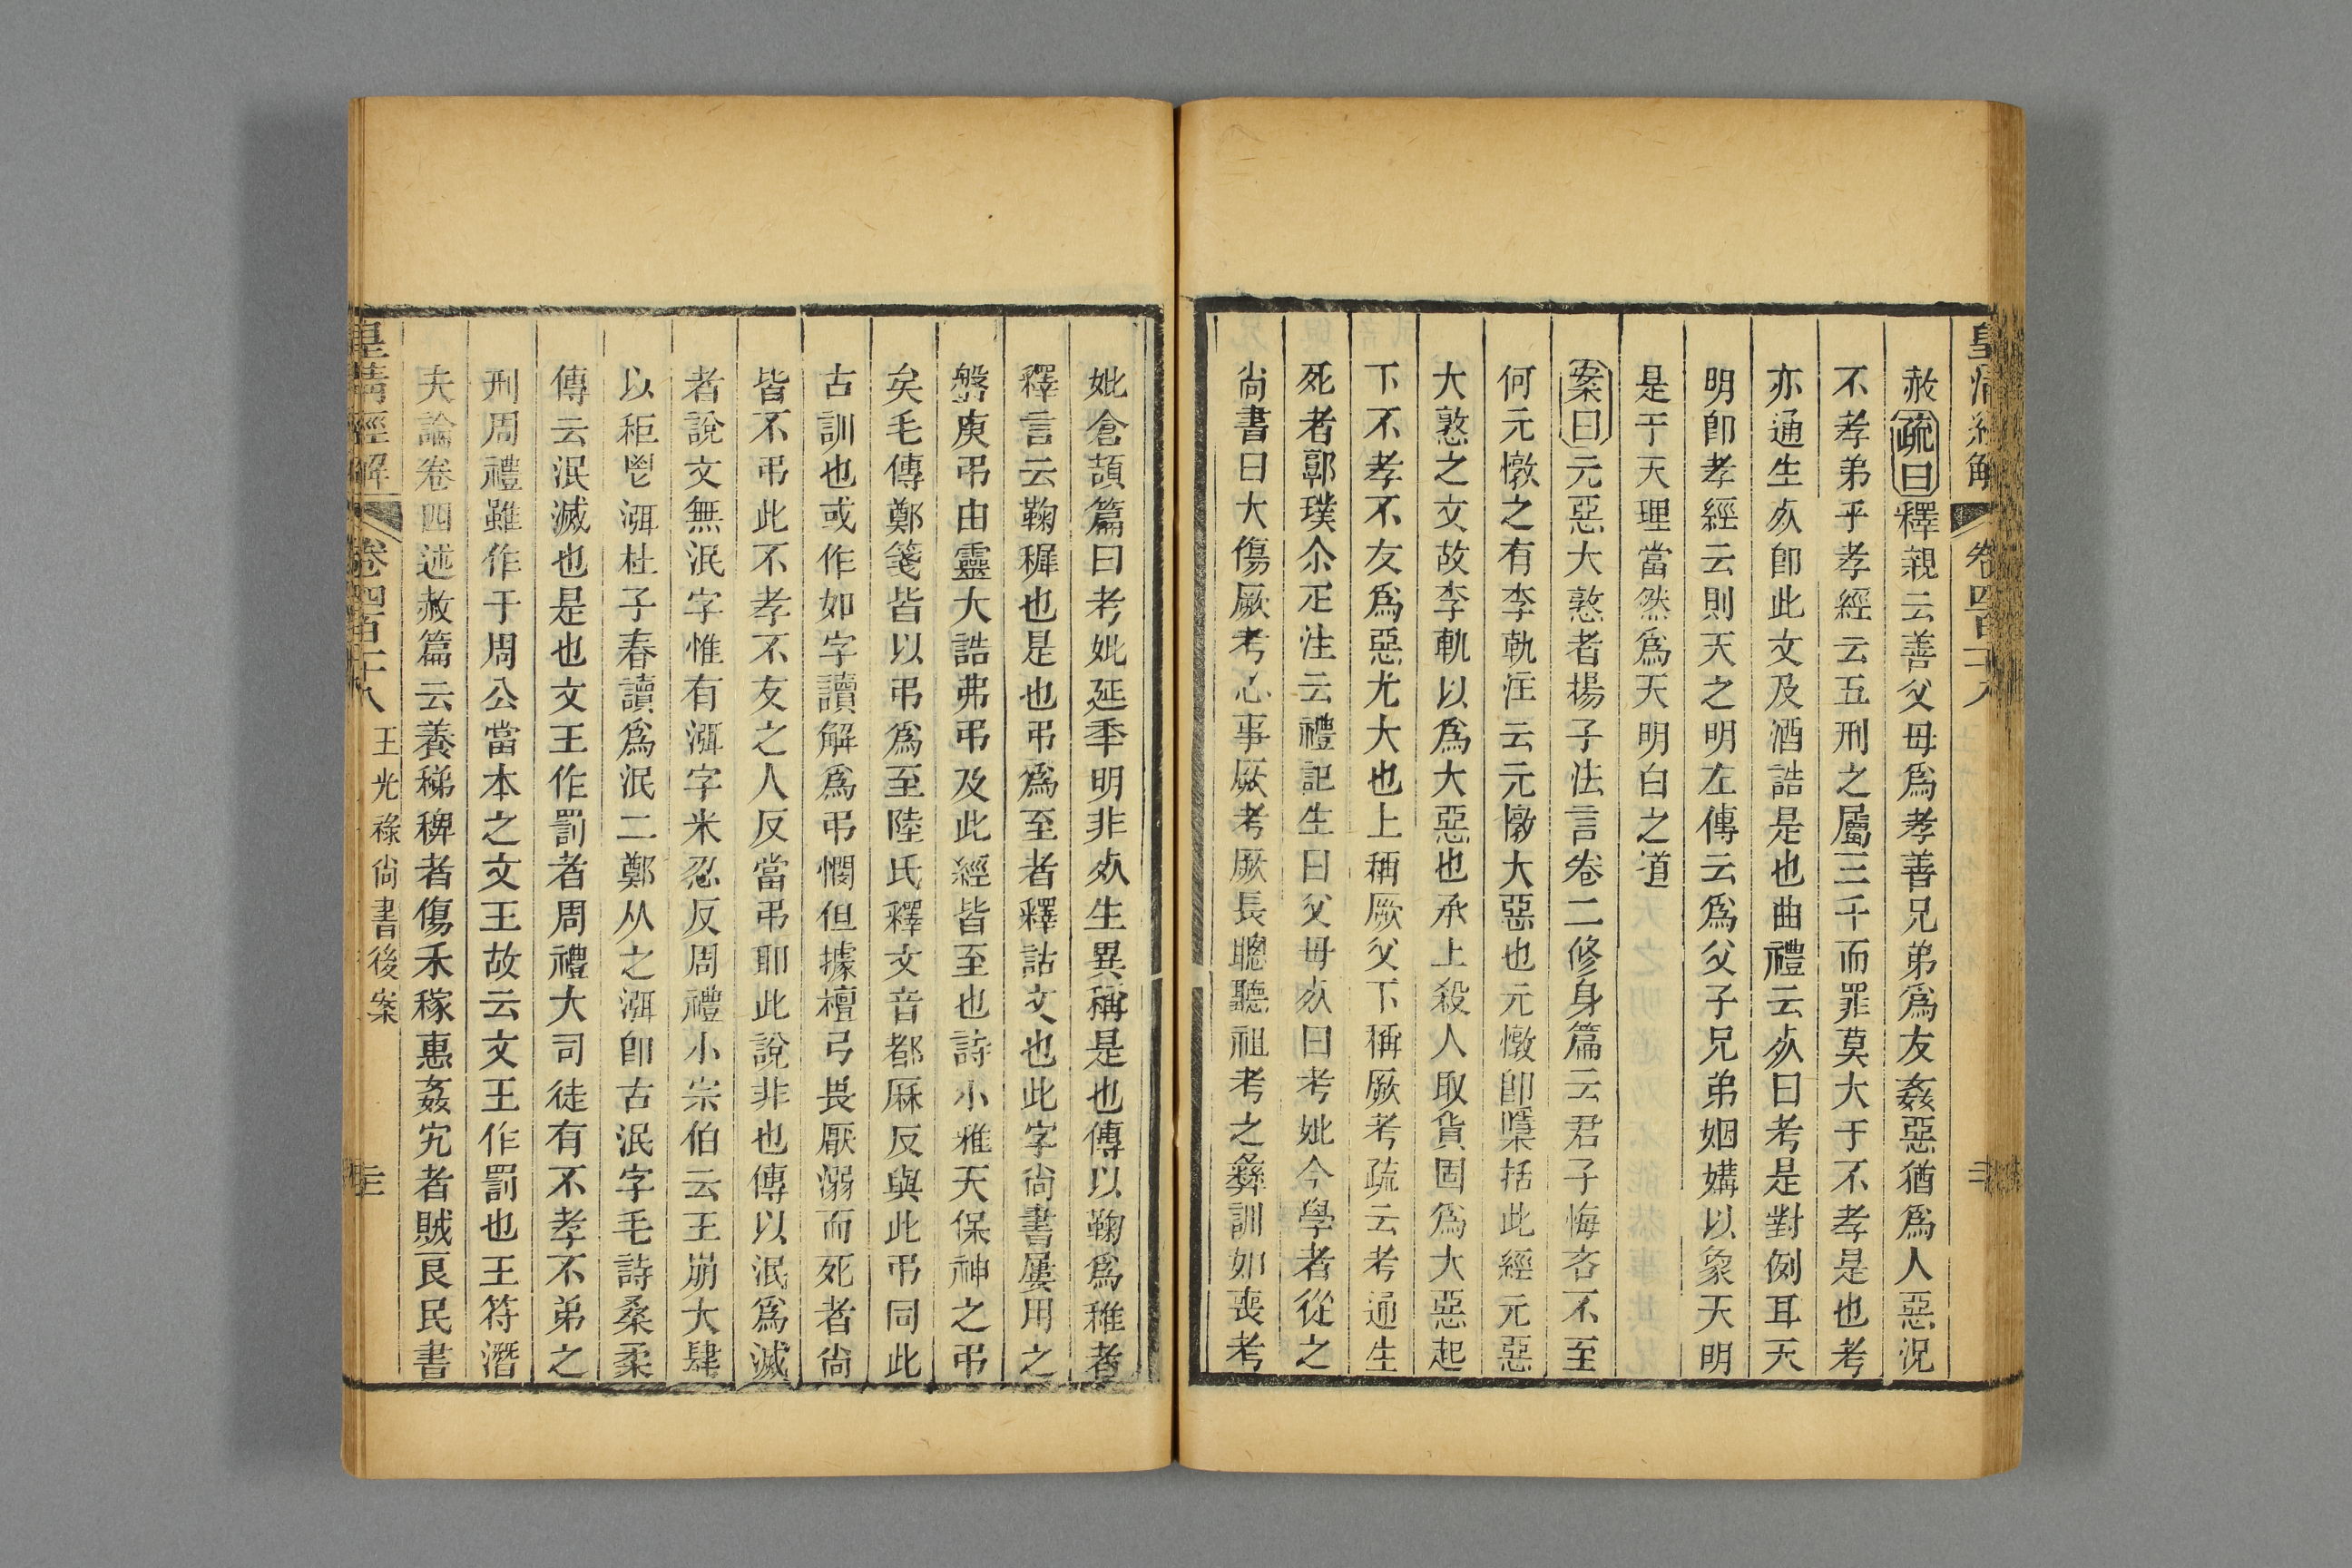 皇清經解 卷四百二十八
赦疏曰釋親云善父母爲孝善兄弟爲友姦惡猶爲人惡況
不孝弟乎孝經云五刑之屬三千而罪莫大于不孝是也考
亦通生㱙卽此文及酒誥是也曲禮云㱙曰考是對例耳天
明卽孝經云則天之明左傳云爲父子兄弟姻媾以象天明
是于天理當然爲天明白之道
案曰元惡大憝者揚子法言卷二修身篇云君子悔吝不至
何元憞之有李軌注云元憞大惡也元憞卽檃括此經元惡
大憝之文故李軌以爲大惡也承上殺人取貨固爲大惡起
下不孝不友爲惡尤大也上稱厥父下稱厥考疏云考通生
死者郭璞尒疋注云禮記生曰父母㱙曰考妣今學者從之
尙書曰大傷厥考心事厥考厥長聰聽祖考之彝訓如喪考
妣倉頡篇曰考妣延秊明非㱙生異稱是也傳以鞠爲稚者
釋言云鞠稺也是也弔爲至者釋詁文也此字尙書屢用之
盤庚弔由靈大誥弗弔及此經皆至也詩小雅天保神之弔
矣毛傳鄭箋皆以弔爲至陸氏釋文音都厤反與此弔同此
古訓也或作如字讀解爲弔憫但據檀弓畏厭溺而死者尙
皆不弔此不孝不友之人反當弔耶此說非也傳以泯爲滅
者說文無泯字惟有湎字米忍反周禮小宗伯云王崩大肆
以秬鬯湎杜子春讀爲泯二鄭从之湎卽古泯字毛詩桑柔
傳云泯滅也是也文王作罰者周禮大司徒有不孝不弟之
刑周禮雖作于周公當本之文王故云文王作罰也王符潛
夫論卷四述赦篇云養稊稗者傷禾稼惠姦宄者賊良民書
皇清經解 卷四百二十八 王光祿尙書後案